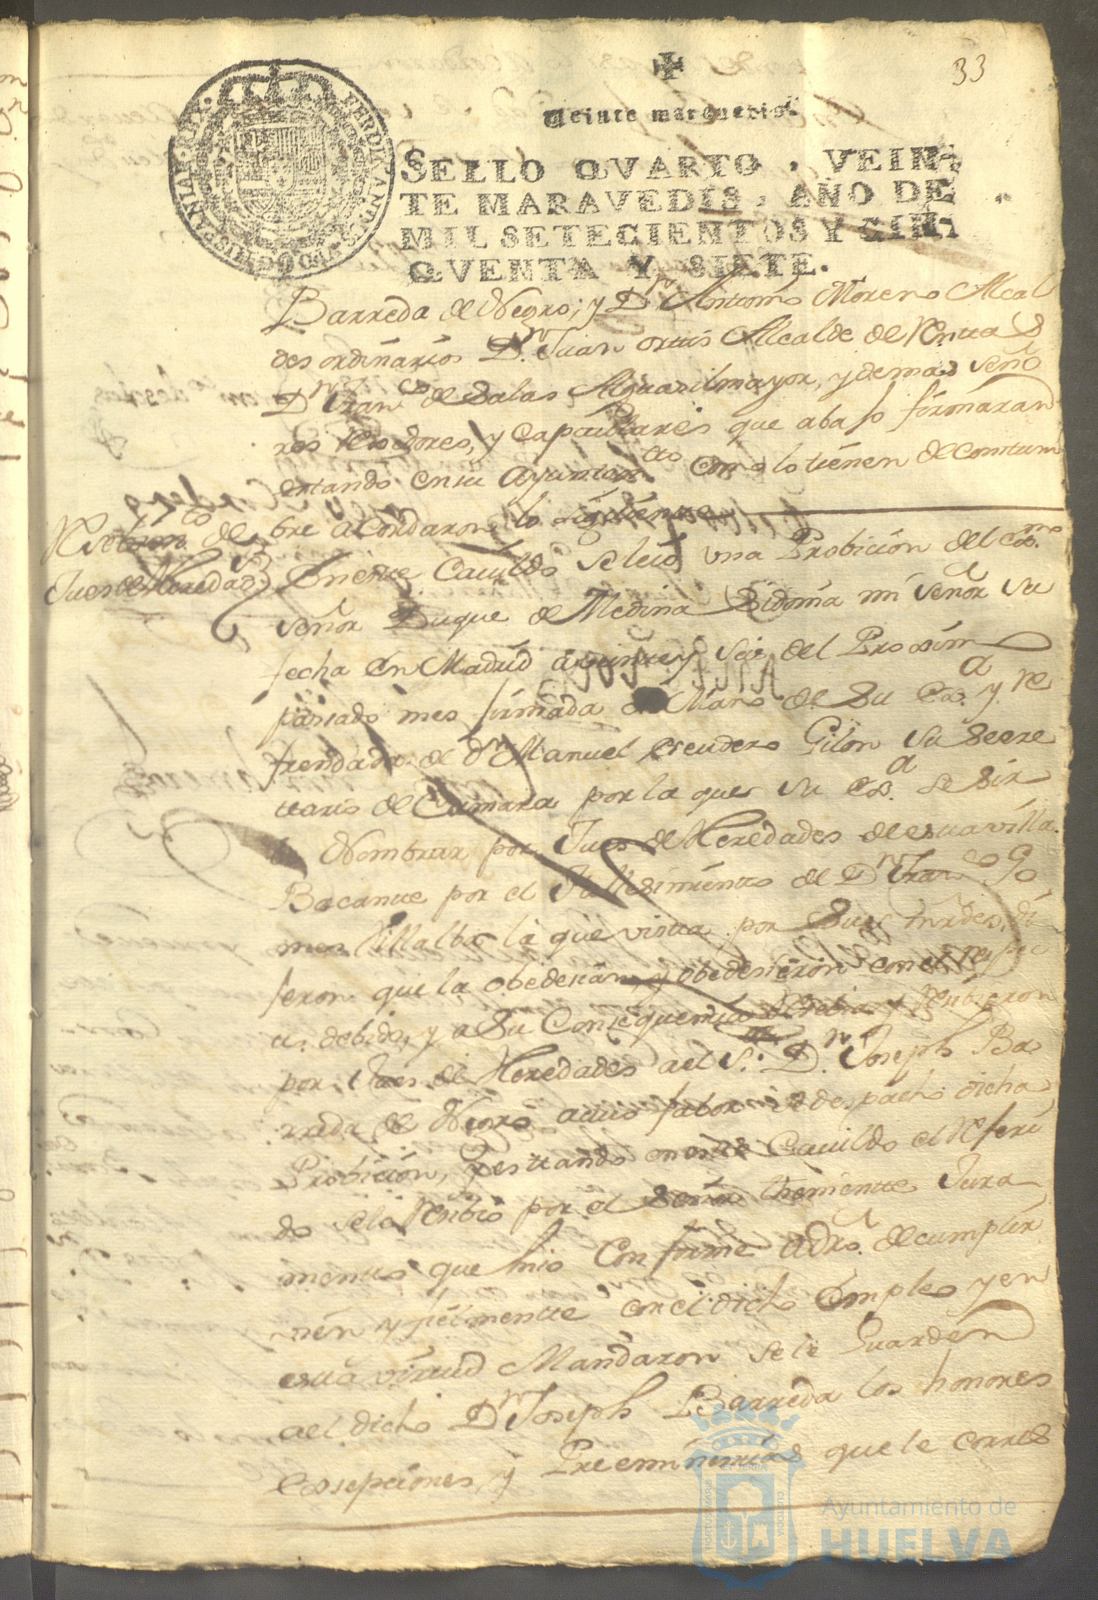 33
Veinte marauedis.
SELLO QVARTO, VEIN-
TE MARAVEDIS, AÑO DE
MIL SETECIENTOS Y CIN-
QVENTA Y SIETE.
Barreda de Negro; y Dn Antonio Moreno Alcal
des ordinarios Dn Juan ortis Alcalde de
Dn Franco de Salas Alguasil mayor, y demas Seño
res Rexidores, y Capitulares que abajo firmaran
estando en su Ayuntamto como lo tienen de Costum
bre acordaron lo siguiente
Resebimto de
Jues de Heredads
En este Cavildo se leió una Probición del Exmo
señor Duque de Medina Sidonia mi señor su
fecha en Madrid a veinte y seis del Proximo
pasado mes firmada de Mano de Su Exa. y re
frendada de dn Manuel escudero Gilon su Secre
tario de Camara por la que Su Exa. se sir
be Nombrar por Jues de Heredades de esta villa
Bacante por el fallesimiento de Dn Franco Go
mes Villalba la que vista por Sus mrdes. di
jeron que la obedesian, y obedesieron con el respec
to debido, y a Su Consequencia Resibieron
por Jues de Heredades ael Sr. Dn Joseph Ba
rreda de Negro a cuio fabor se despacho dicha
Probición, y estando en este Cavildo el referi
do se le Resibió por el Señor theniente Jura
mento que hiso Conforme a dro. de cumplir
vien y fielmente con el dicho Empleo y en
esta virtud Mandaron se le Guarden
ael dicho Dn Joseph Barreda los honores
exsepciones, y Preeminencias que le corres
Ayuntamiento de
HUELVA